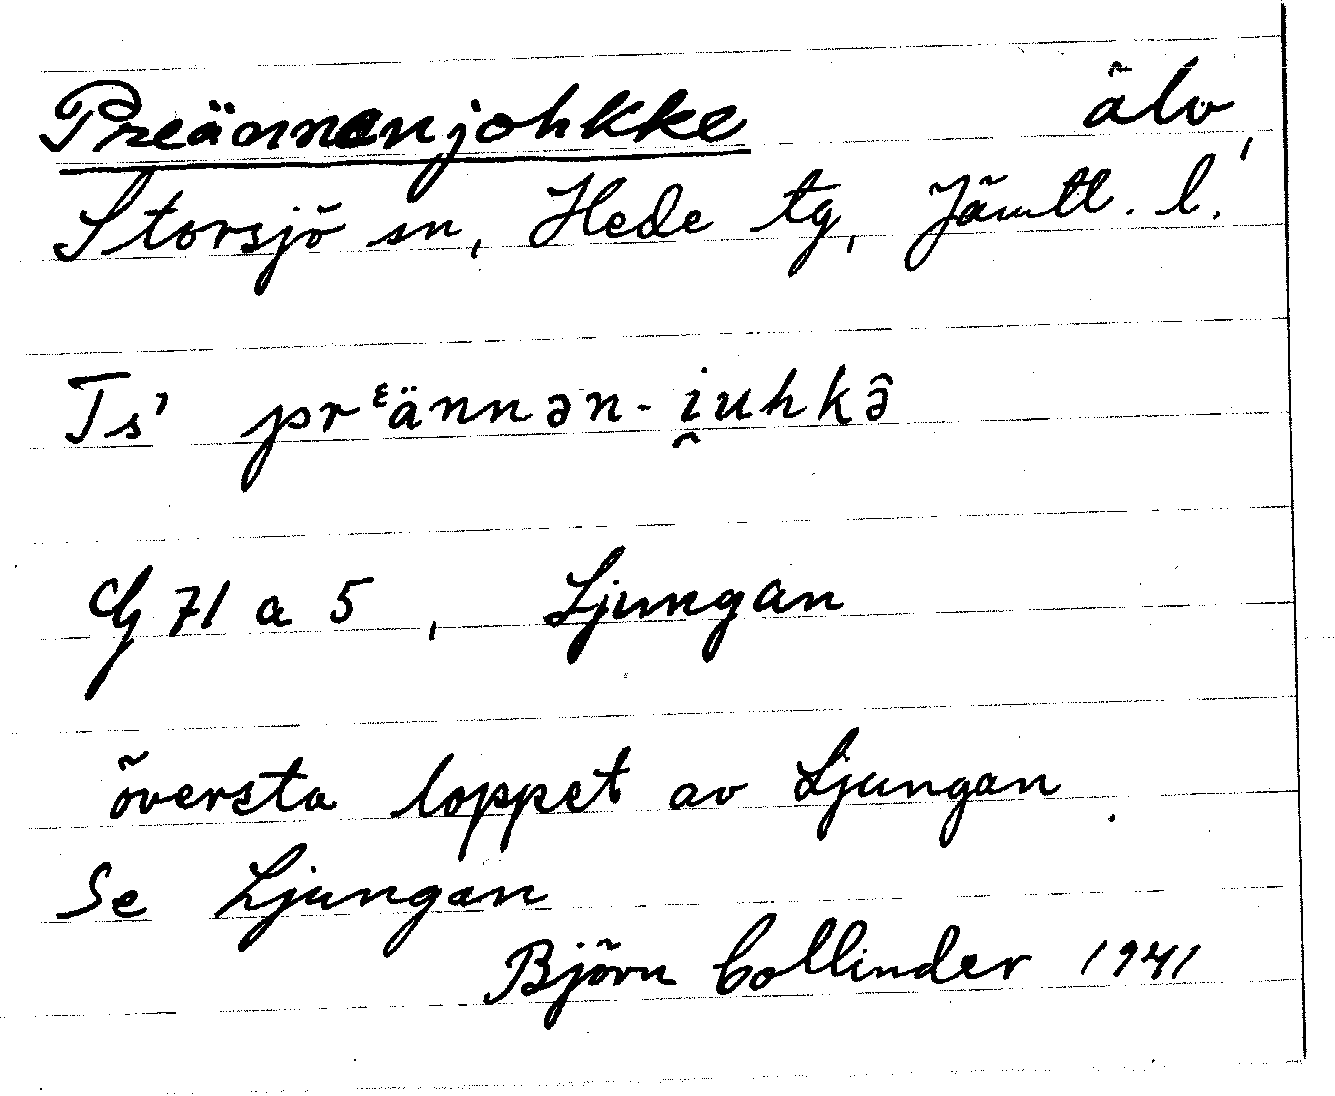 Preännenjohkke älv,
Storsjö sn, Hede tg, Jämtl. l.
Ts' prᵋännən-i̯uhkə̂
Gg 71 a 5, Ljungan
översta loppet av Ljungan.
Se Ljungan
Björn Collinder 1941